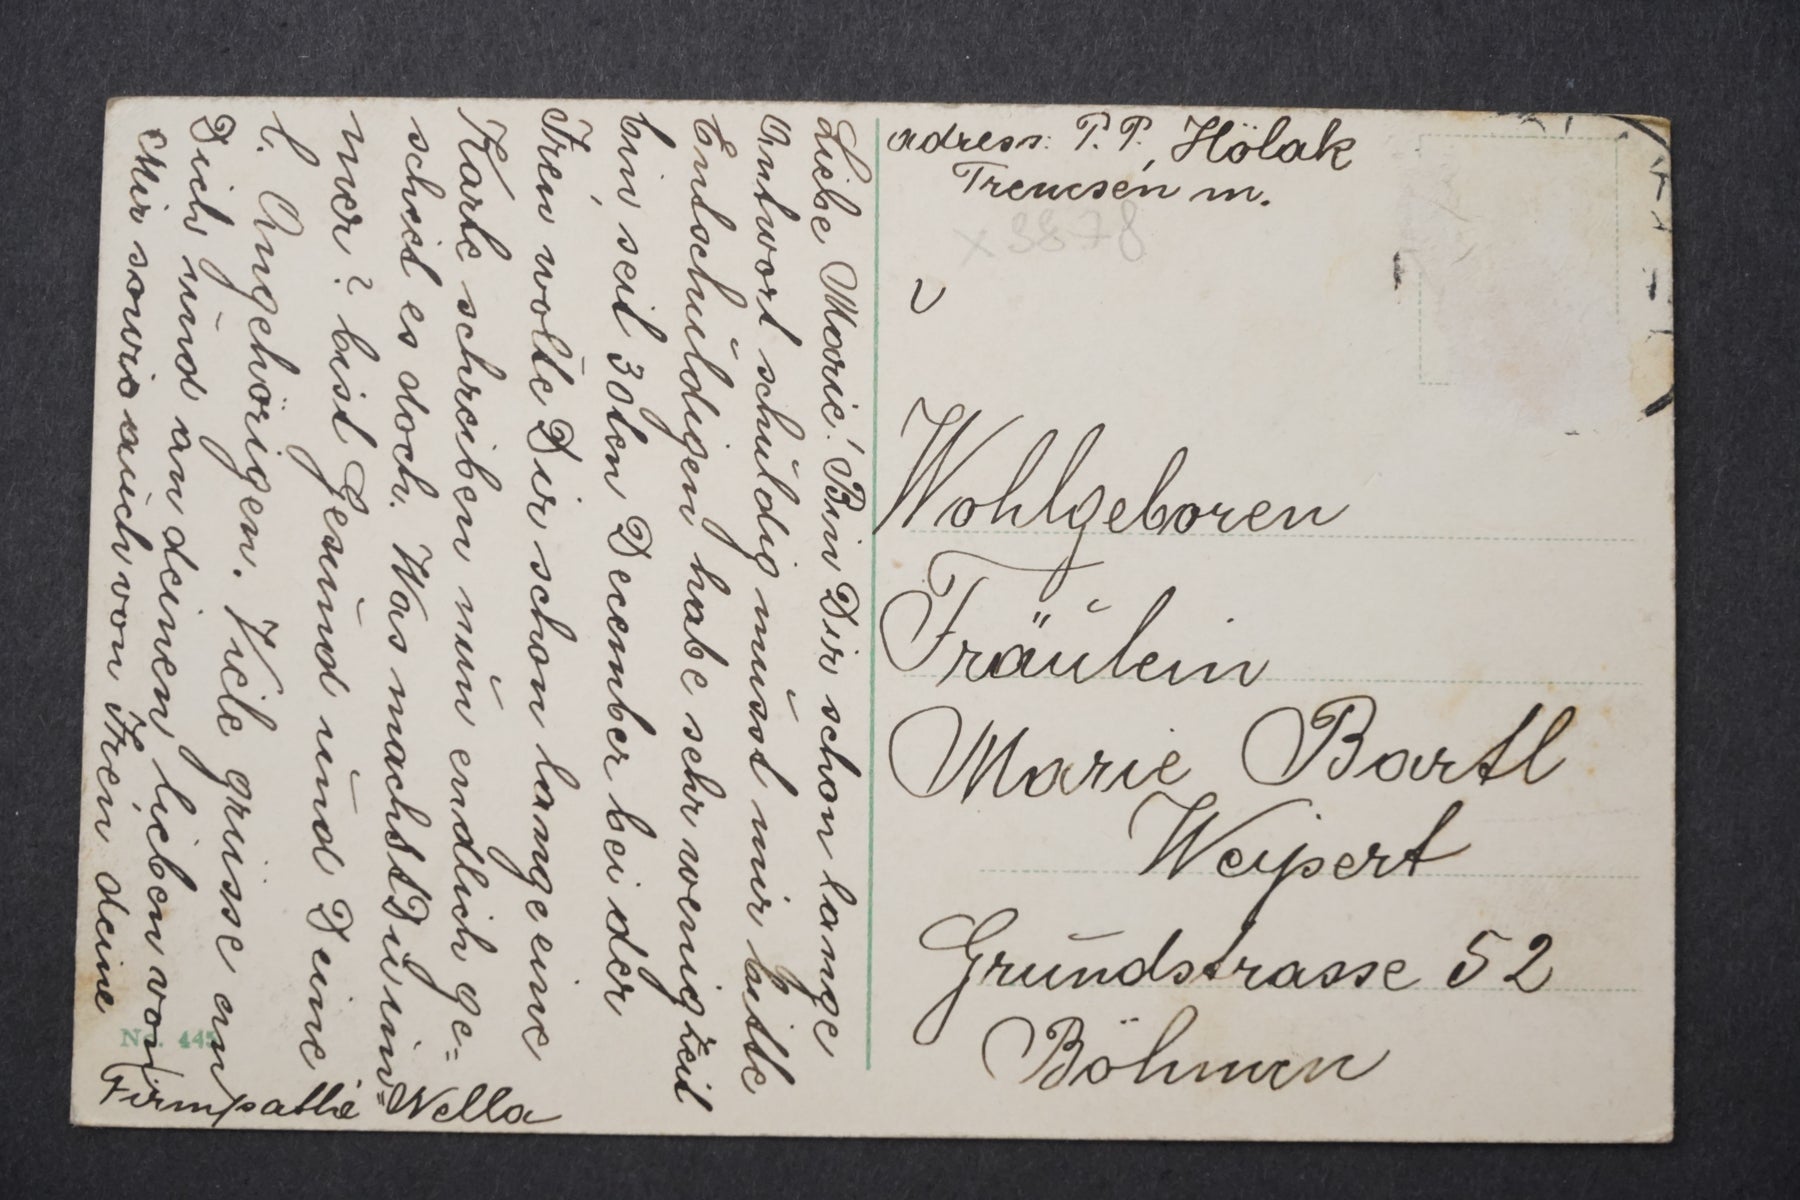 Liebe Marie! Bin Dir schon lange
Antwort schuldig musst mir bitte
Entschuldigen habe sehr wenig Zeit
bin seit 30ten December bei der
Fren wolte Dir schon lange eine
Karte schreiben nun endlich ge=
schiet es doch. Was machst Du im=
mer? bist Gesund und Deine
l. Angehörigen. Viele grüsse an
Dich und an deinen lieben von
Mir sowie auch von Fren deine
Firmpathe Nella
No. 445
adress: P. P. Hölak
Trencsén m.
x 3878
Wohlgeboren
Fräulein
Marie Bartl
Weipert
Grundstrasse 52
Böhmen